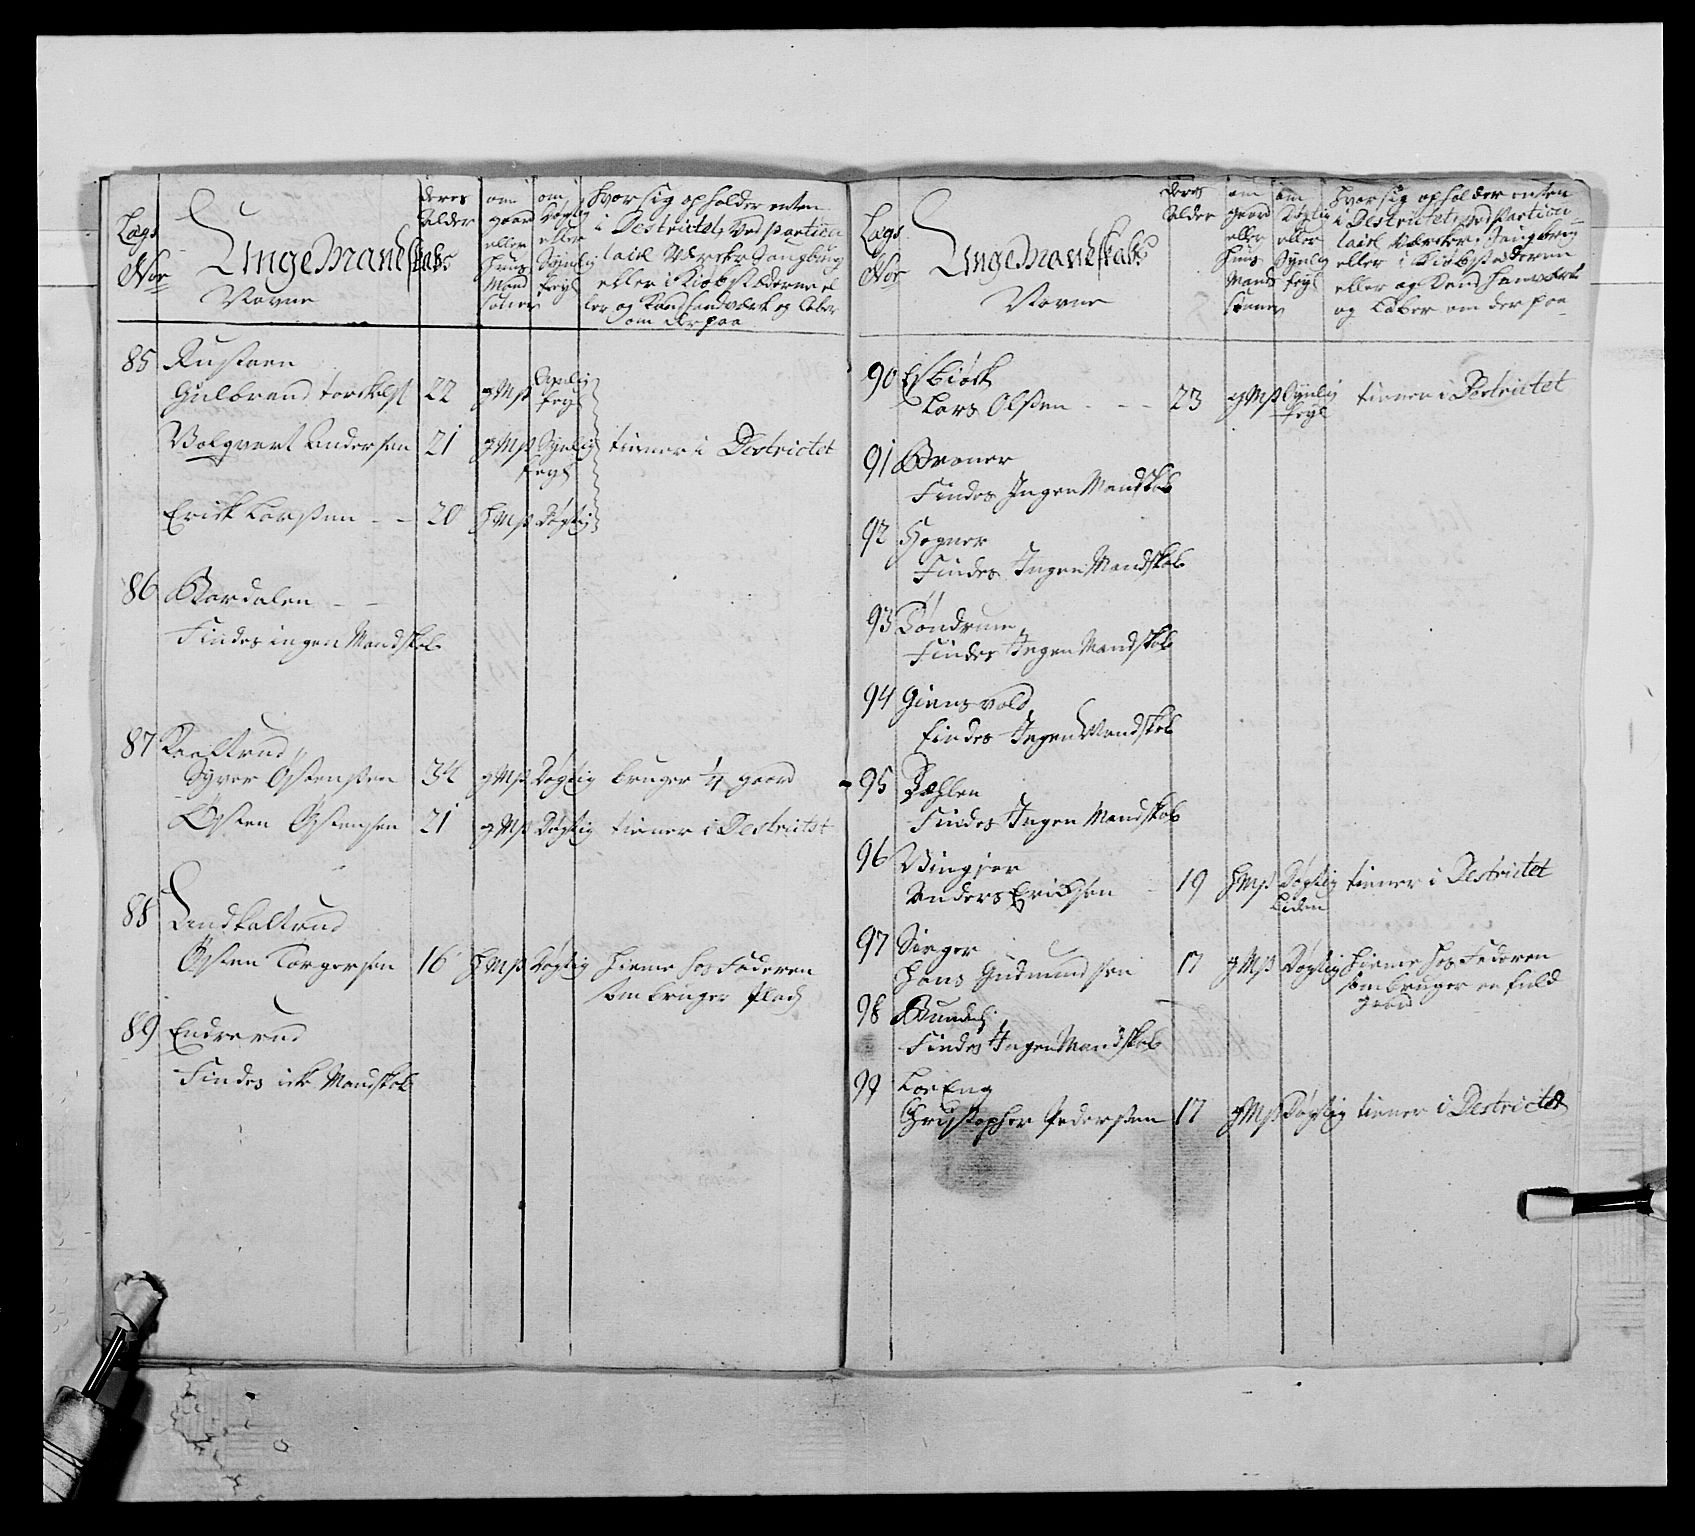 Lægs
Nor
Unge Mandskabs
Navne
deres
Alder
om
gaard
eller
huus
Mand
sønner
om
Døgtig
eller
Synlig
feyl
hvor sig opholder enten
i Destrictet, ved particu
lair Værcker Saugbrug
eller i Kiøbstæderne el
ler og kand handværk og Laber
om der paa
85 Rustaen
Gulbrand Torckels 22 gMß Synlig
feyl
Volqvart Andersen 21 gMß Synlig tiener i Destrictet
feyl
Erick Larsßen - - 20 HMß Døgtig
86 Bordalen - -
Findes ingen Mandskab
87 Kaaltrud
Syver Østensten 34 gMß Døgtig bruger 1/4 gaard
Østen Østensen 21 gMß Døgtig tiener i Destrictet
88 Landkaltrud
Østen Torgersen 16 HMß Døgtig hieme hos Faderen
som bruger Plads
89 Endrerud
Findes icke Mandskab
Lægs
Nor
Unge Mandskabs
Navne
deres
Alder
om
gaard
eller
huus
Mands
sønner
om
Døgtig
eller
Synlig
feyl
hvor sig opholder enten
i Destrictet, ved Particu
lair Værcker, Saugbrug
eller i Kiøbstæderne
eller og kand handværk
og Laber om der paa
90 Esbiørk
Lars Olßen - - - 23 gMß Synlig tiener i Destrictet
feyl
91 Braner
Findes Ingen Mandskab
92 Hagner
Findes Ingen Mandskab
93 Døndrum
Findes Ingen Mandskab
94 Giensvold
Findes Ingen Mandskab
95 Dæhlen
Findes Ingen Mandskab
96 Vingjer
Anders Erichsen - 19 HMß Døgtig tiener i Destrictet
Liden
97 Sirger
Hans Gudmundsen 17 gMß Døgtig hieme hos Faderen
som bruger en fuld
gaard
98 Bunde
Findes Ingen Mandskab
99 Løe Eng
Christopher Pedersßen 17 gMß Døgtig tiener i Destrictet